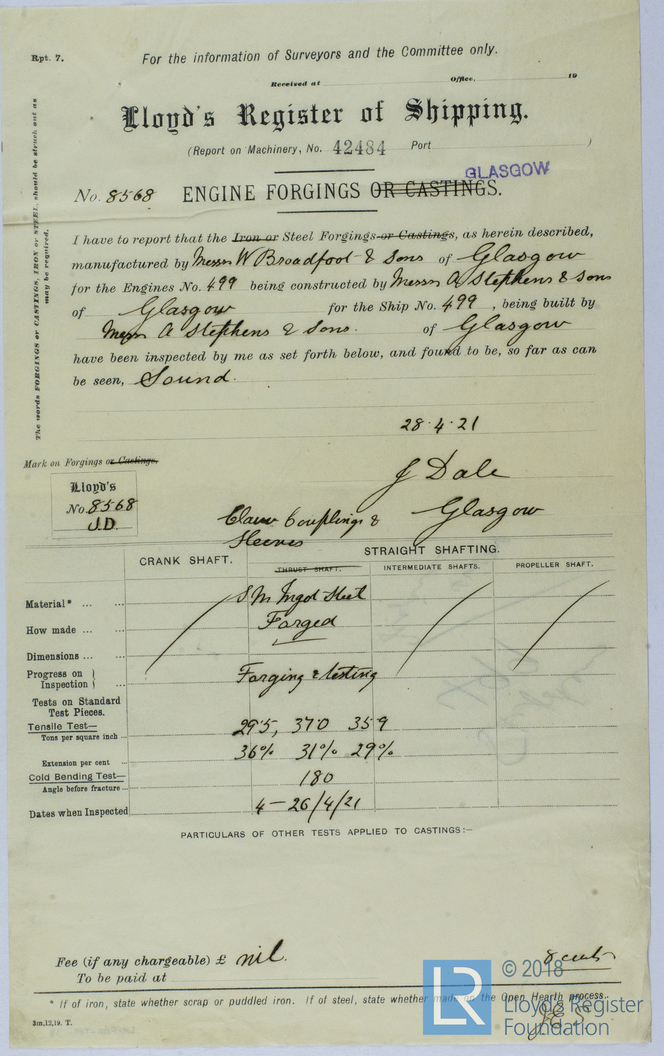 Rpt. 7.
For the information of Surveyors and the Committee only.
Received at Office, 19
Lloyd's Register of Shipping.
(Report on Machinery, No. 42484 Port )
GLASGOW
No. 8568 ENGINE FORGINGS OR CASTINGS.
The words FORGINGS or CASTINGS, IRON or STEEL, should be struck out as may be required.
I have to report that the Iron or Steel Forgings or Castings, as herein described,
manufactured by Messrs W Broadfoot & Sons of Glasgow
for the Engines No. 499 being constructed by Messrs A Stephens & Sons
of Glasgow for the Ship No. 499, being built by
Messrs A Stephens & Sons. of Glasgow
have been inspected by me as set forth below, and found to be, so far as can
be seen, Sound.
28.4.21
Mark on Forgings or Castings.
J Dale
Lloyd's
No. 8568
J.D.
Glasgow
Claw Couplings &
Sleeves
CRANK SHAFT. STRAIGHT SHAFTING.
THRUST SHAFT. INTERMEDIATE SHAFTS. PROPELLER SHAFT.
Material* ... ... S M Ingot Steel
How made ... ... Forged
Dimensions ... ...
Progress on Inspection } Forging & testing
Tests on Standard
Test Pieces.
Tensile Test—
Tons per square inch ... 29.5, 37.0 35.9
Extension per cent ... 36% 31% 29%
Cold Bending Test—
Angle before fracture... 180
Dates when Inspected 4-26/4/21
PARTICULARS OF OTHER TESTS APPLIED TO CASTINGS:—
Fee (if any chargeable) £ nil.
To be paid at
* If of iron, state whether scrap or puddled iron. If of steel, state whether made on the Open Hearth process.
3m,12,19. T.
LR
© 2018
Lloyd's Register
Foundation